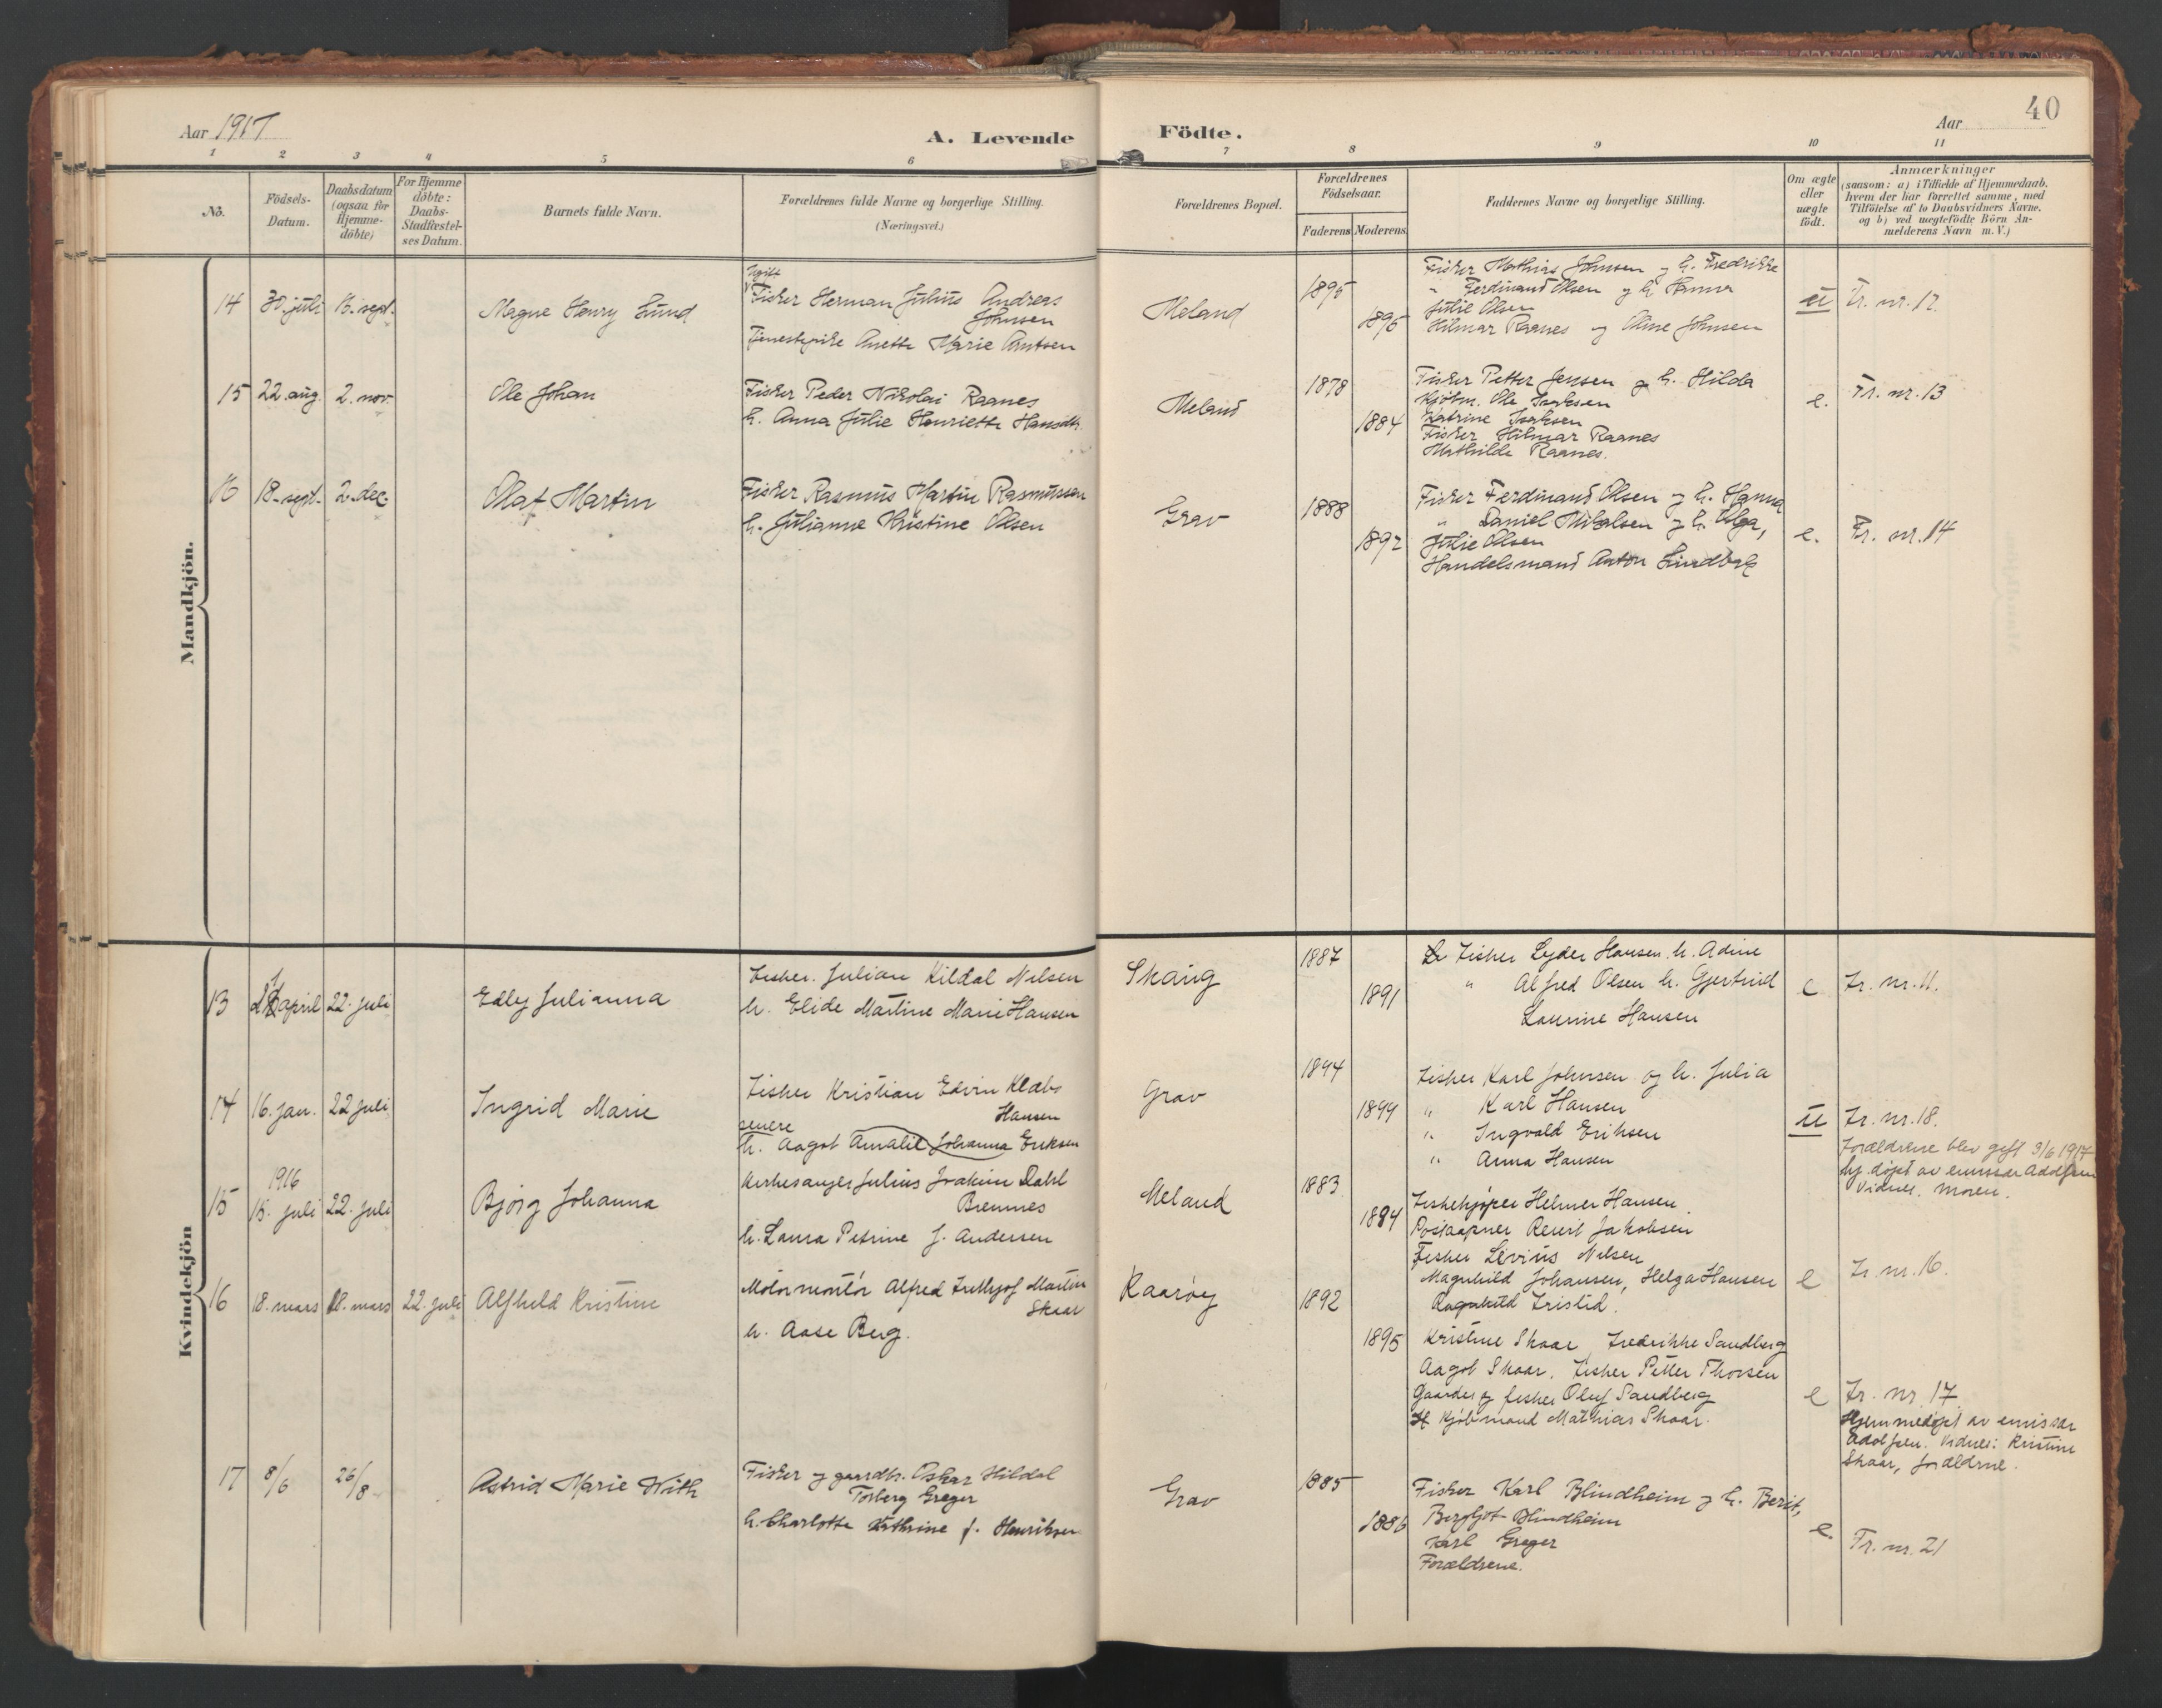 Aar 1917
A. Levende
Födte.
Aar
40
1 2 3 4 5 6 7 8 9 10 11
No.
Födsels-
Datum.
Daabsdatum
(ogsaa for
Hjemme-
döbte)
For Hjemme
döbte:
Daabs-
Stadfæstel-
ses Datum.
Barnets fulde Navn.
Forældrenes fulde Navne og borgerlige Stilling.
(Næringsvei.)
Forældrenes Bopæl.
Forældrenes
Födselsaar.
Faderens Moderens
Faddernes Navne og borgerlige Stilling.
Om ægte
eller
uægte
födt.
Anmærkninger
(saasom: a) i Tilfælde af Hjemmedaab.
hvem der har forrettet samme, med
Tilföielse af to Daabsvidners Navne.
og b) ved uegtefödte Börn An-
melderens Navn m.V.)
Mandkjön.
14 30. juli 16. sept. Magne Henry Lund
Ugift
Fisker Herman Julius Andreas
Johnsen
Tjenestepike Anette Marie Antsen
Meland
1895
1896
Fisker Mathias Johnsen og h. Fredrikke
" Ferdinand Olsen og h. Hanna
Julie Olsen
Hilmar Raanes og Oline Johnsen
u
Fr. nr. 12.
15 22. aug. 2. nov. Ole Johan
Fisker Peder Nikolai Raanes
h. Anna Julie Henriette Hansdtr.
Meland
1878
1884
Fisker Petter Jensen og h. Hilda
Kjøbm. Ole Isaksen
Katrine Isaksen
Fisker Hilmar Raanes
Mathilde Raanes.
e.
Fr. nr. 13
16 18. sept. 2. dec. Olaf Martin
Fisker Rasmus Martin Rasmussen
h. Julianne Kristine Olsen
Grav
1888
1892
Fisker Ferdinand Olsen og h. Hanna
" Daniel Mikalsen og h. Olga,
Julie Olsen
Handelsmand Anton Lindbak
e.
Fr. nr. 14
Kvindekjön
13 april 22. juli Edly Julianna
Fisker. Julian Kildal Nilsen
h. Elide Martine Marie Hansen
Skaug
1887
1891
Fisker Lyder Hansen h. Adine
" Alfred Olsen h. Gjertrud
Laurine Hansen
e
Fr. nr. 11.
14 16. jan. 22 juli Ingrid Marie
Fisker Kristian Edvin Klabs
Hansen
senere
h. Aagot Amalie Johanna Eriksen
Grav
1894
1899
Fisker Karl Johnsen og h. Julia
" Karl Hansen
" Ingvald Eriksen
" Anna Hansen
u
Fr. nr. 18.
Forældrene blev gift 3/6 1917
hj. døpt av emissær Adolfsen
Vidner. Moren.
1916
15 15. juli 22. juli Bjørg Johanna
Kirkesanger Julius Joakim Dahl
Bremnes
h. Laura Petrine f. Andersen
Meland
1883
1884
Fiskekjøper Helmer Hansen.
Postaapner Reinert Jakobsen
Fisker Levius Nilsen
Magnhild Johansen, Helga Hansen
Ragnhild Fristid.
e
Fr. nr. 16.
16 18. mars 18. mars 22. juli Alfhild Kristine
Motormontør Alfred Frithjof Martin
Skaar
h. Aase Berg.
Kaarøy
1892
1895
Kristine Skaar Fredrikke Sandberg
Aagot Skaar. Fisker Petter Thorsen
Gaardbr og fisker Oluf Sandberg
Kjøbmand Mathias Skaar.
e
Fr. nr. 17
Hjemmedøpt av emissær
Adolfsen. Vidner: Kristine
Skaar, forældrene.
17 8/6 26/8 Astrid Marie With
Fisker og gaardbr. Oskar Hildal
Torberg Greger
h. Charlotte Kathrine f. Henriksen
Grav
1885
1886
Fisker Karl Blindheim og h. Berit,
Bergljot Blindheim
Karl Greger
Forældrene.
e.
Fr. nr. 21